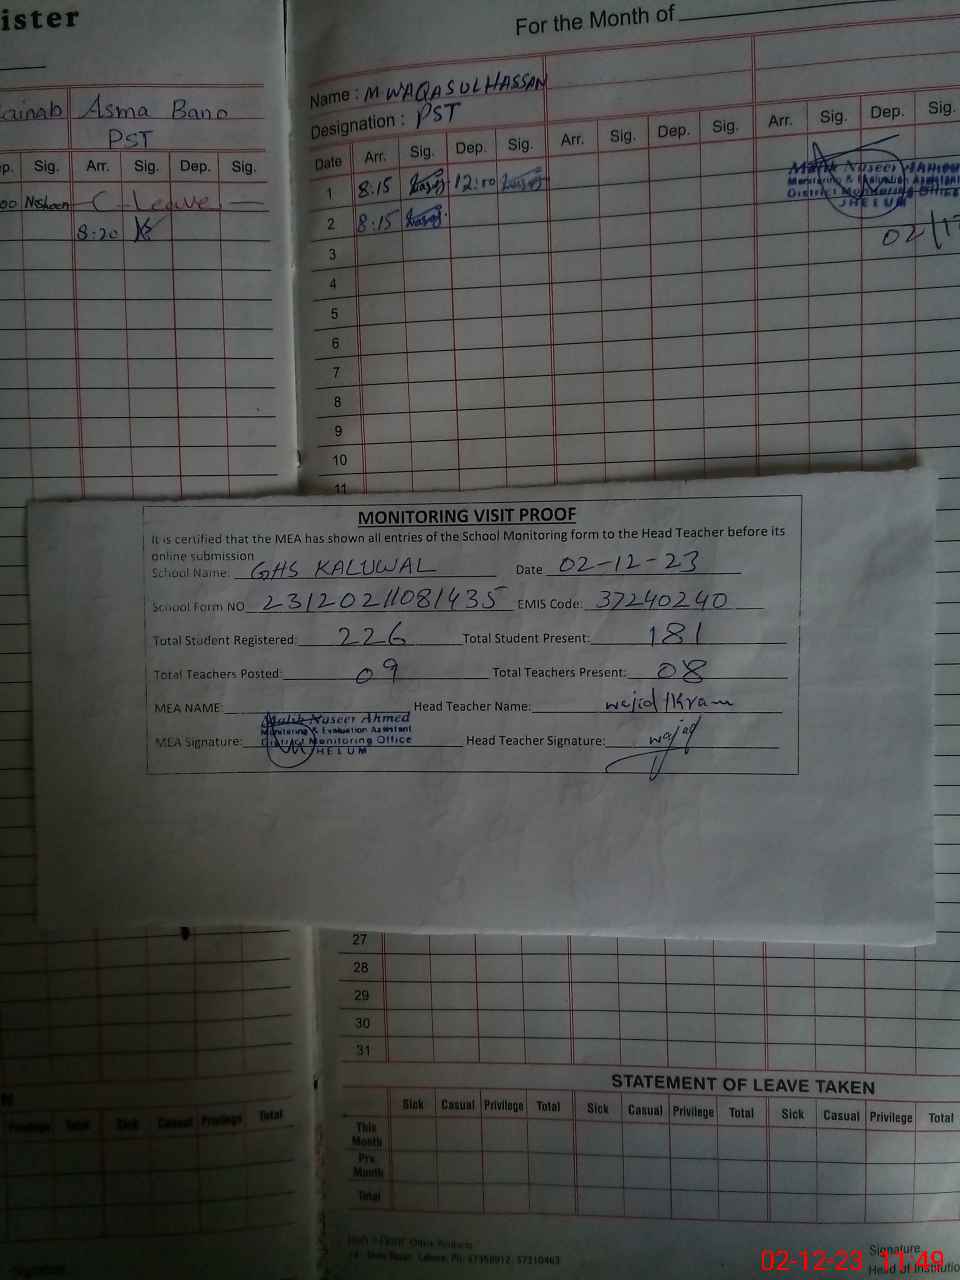 ister
For the Month of
Zainab Asma Bano
PST
Name : M WAQAS UL HASSAN
Designation : PST
p. Sig. Arr. Sig. Dep. Sig.
Date Arr. Sig. Dep. Sig. Arr. Sig. Dep. Sig. Arr. Sig. Dep. Sig.
00 Nosheen C Leave
8:20
1 8:15 12:00
2 8:15
Malik Naseer Ahmed
Monitoring & Evaluation Assistant
District Monitoring Office
JHELUM
02/12
3
4
5
6
7
8
9
10
11
MONITORING VISIT PROOF
It is certified that the MEA has shown all entries of the School Monitoring form to the Head Teacher before its
online submission
School Name: GHS KALUWAL Date 02-12-23
School Form NO 2312021108 1435 EMIS Code: 37240240
Total Student Registered: 226 Total Student Present: 181
Total Teachers Posted: 09 Total Teachers Present: 08
MEA NAME: Head Teacher Name: wajid Ikram
Malik Naseer Ahmed
Monitoring & Evaluation Assistant
District Monitoring Office
JHELUM
MEA Signature: Head Teacher Signature: wajid
27
28
29
30
31
STATEMENT OF LEAVE TAKEN
Sick Casual Privilege Total Sick Casual Privilege Total Sick Casual Privilege Total
Privilege Total Sick Casual Privilege Total
This
Month
Pre.
Month
Total
Signature
Head of Institutio
02-12-23 11:49